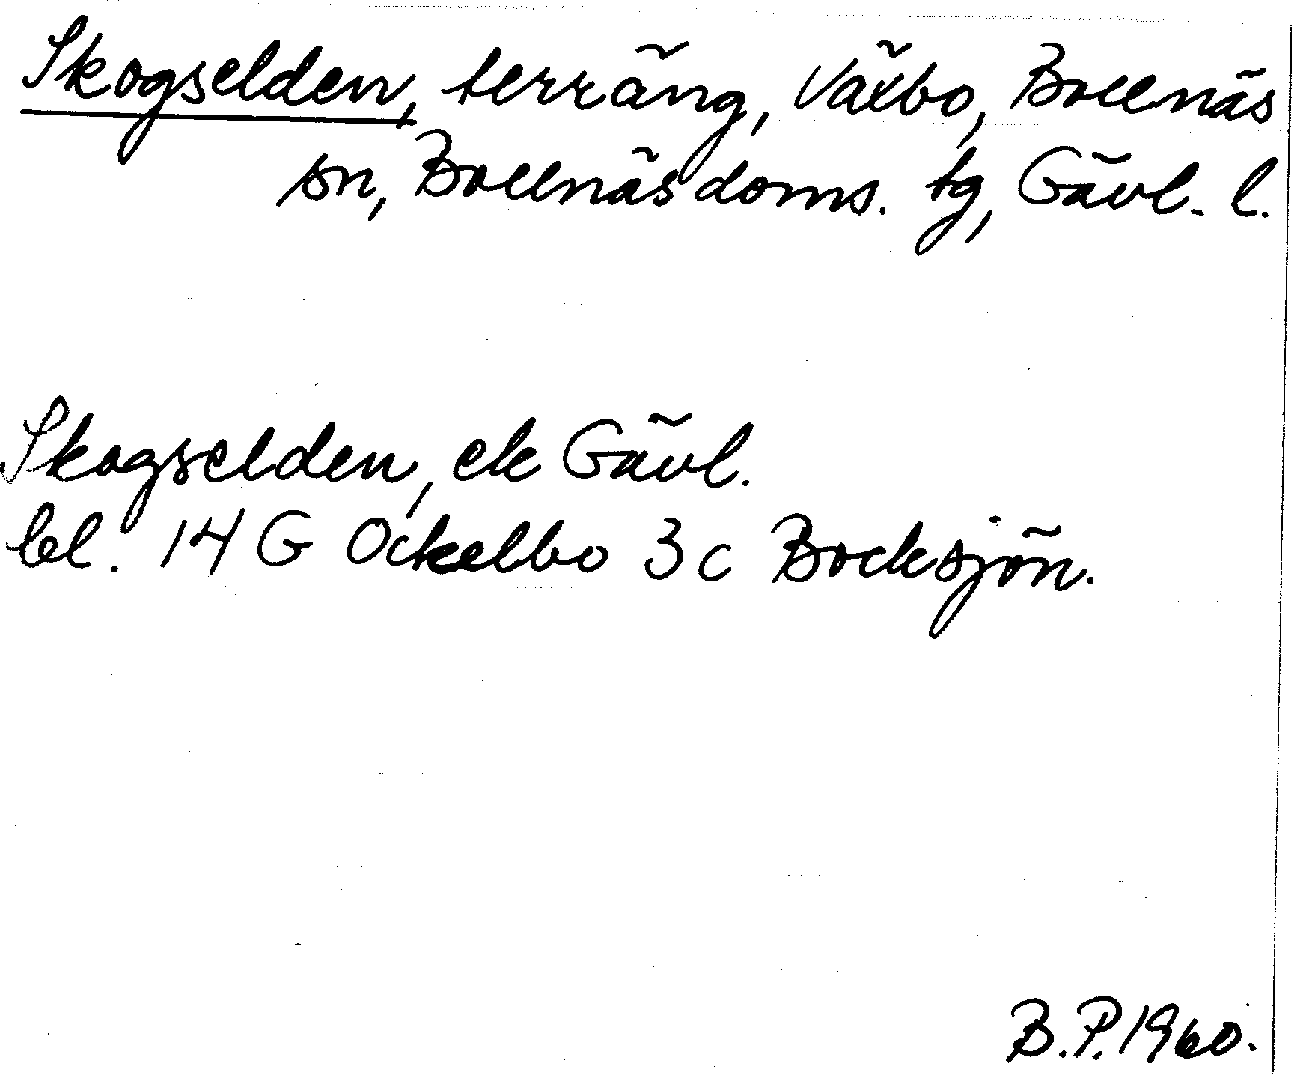 Skogselden, terräng, Växbo, Bollnäs
sn, Bollnäs doms. tg, Gävl. l.
Skogselden, ek Gävl.
bl. 14 G Ockelbo 3 c Bocksjön.
B.P. 1960.